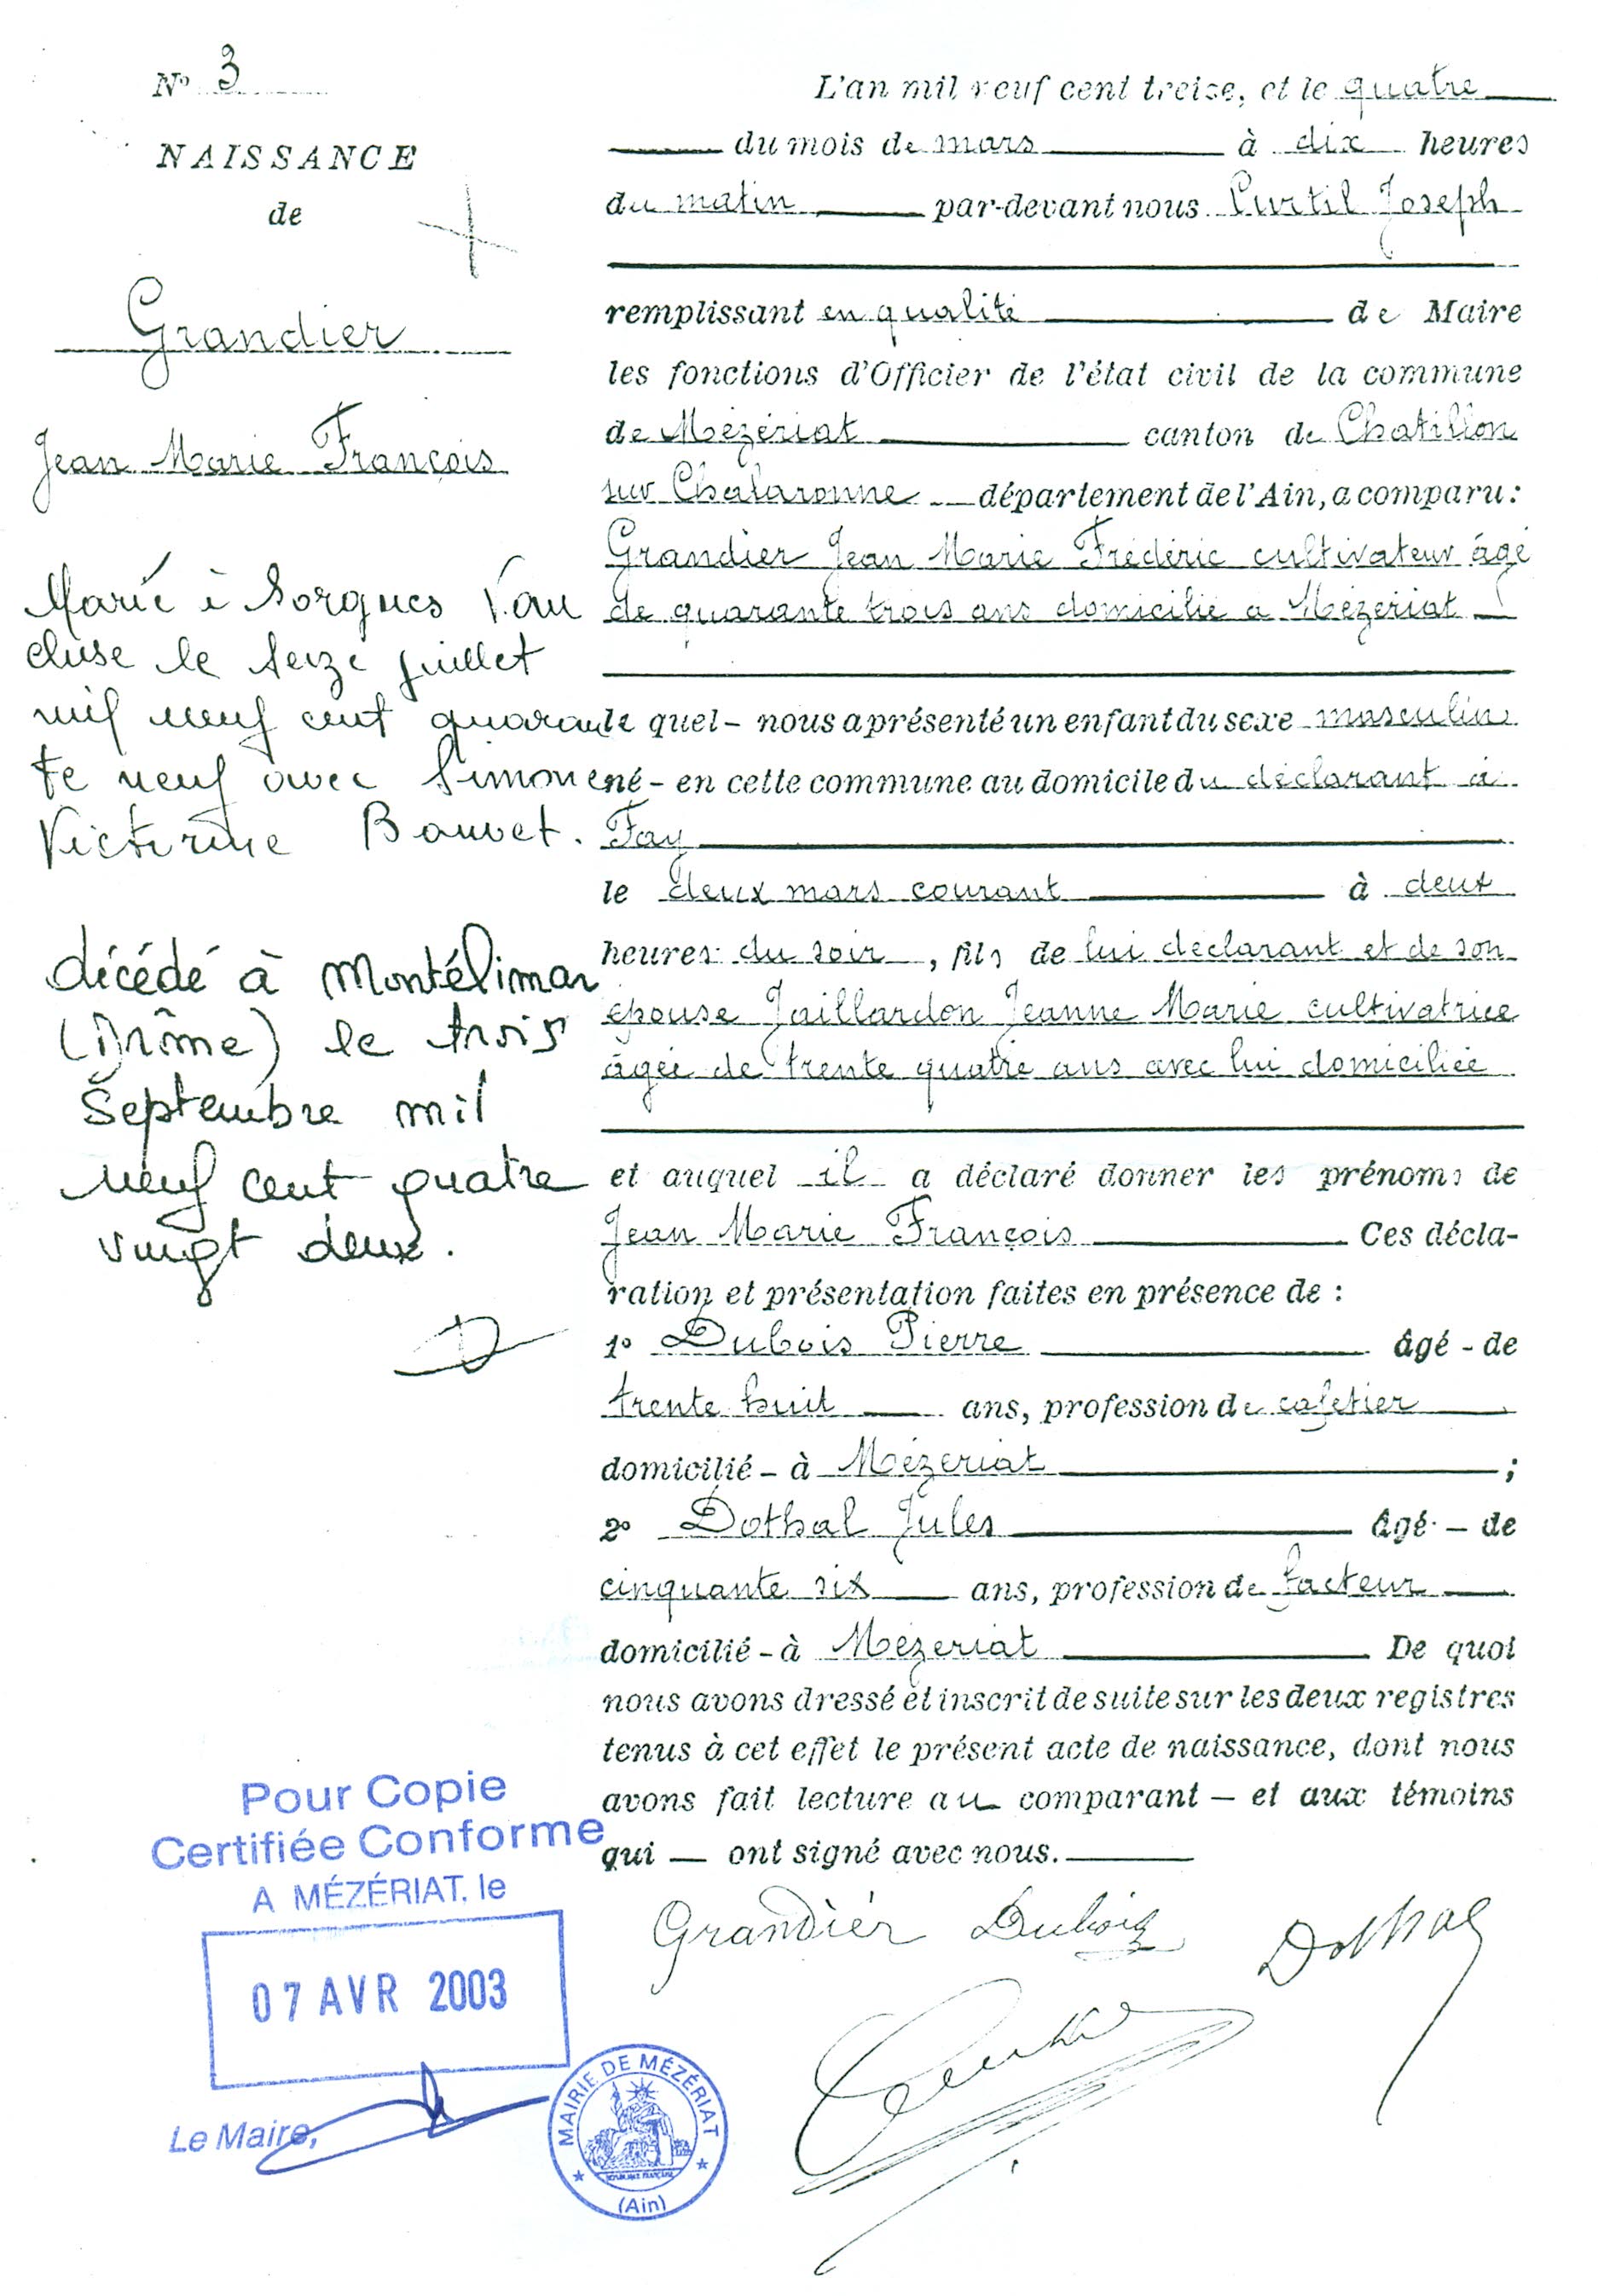 Nº 3
NAISSANCE
de
Grandier
Jean Marie François
Marié à Sorgues Vau
cluse le seize juillet
mil neuf cent quaran
te neuf avec Simone
Victorine Bouvet.
décédé à Montélimar
(Drôme) le trois
Septembre mil
neuf cent quatre
vingt deux.
L'an mil neuf cent treize, et le quatre
du mois de mars à dix heures
du matin par-devant nous Curtil Joseph
remplissant en qualité de Maire
les fonctions d'Officier de l'état civil de la commune
de Mézériat canton de Chatillon
sur Chalaronne département de l'Ain, a comparu :
Grandier Jean Marie Frédéric cultivateur âgé
de quarante trois ans domicilié a Mézériat
le quel - nous a présenté un enfant du sexe masculin
né - en cette commune au domicile du déclarant à
Fay
le deux mars courant à deux
heures du soir, fils de lui déclarant et de son
épouse Jaillardon Jeanne Marie cultivatrice
âgée de trente quatre ans avec lui domiciliée
et auquel il a déclaré donner les prénoms de
Jean Marie François Ces décla-
ration et présentation faites en présence de :
1º Dubois Pierre âgé - de
trente huit ans, profession de cafetier
domicilié - à Mézériat ;
2º Dothal Jules âgé - de
cinquante six ans, profession de facteur
domicilié - à Mézériat De quoi
nous avons dressé et inscrit de suite sur les deux registres
tenus à cet effet le présent acte de naissance, dont nous
avons fait lecture au comparant - et aux témoins
qui - ont signé avec nous.
Grandier Dubois Dothal
Pour Copie
Certifiée Conforme
A MÉZÉRIAT, le
07 AVR 2003
Le Maire,
MAIRIE DE MÉZÉRIAT
(Ain)